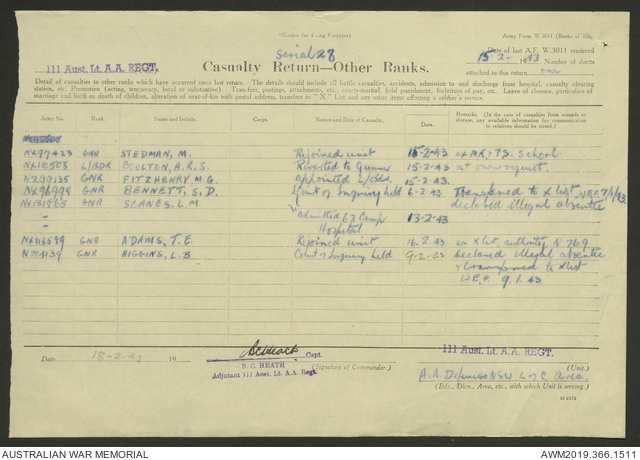 (Margin for Filing Purposes) Army Form W.3011 (Books of 100).
Serial 28
Date of last A.F. W.3011 rendered
15-2-1943
111 Aust. Lt. A.A. REGT.
Casualty Return—Other Ranks.
Number of sheets
attached to this return one
Detail of casualties to other ranks which have occurred since last return. The details should include all battle casualties, accidents, admission to and discharge from hospital, casualty clearing
station, etc. Promotion (acting, temporary, local or substantive). Transfers, postings, attachments, etc., courts-martial, field punishment, forfeiture of pay, etc. Leave of absence, particulars of
marriage and birth or death of children, alteration of next-of-kin with postal address, transfers to "X" List and any other items affecting a soldier's service.
Army No. Rank. Name and Initials. Corps. Nature and Date of Casualty. Date. Remarks. (In the case of casualties from wounds or disease, any available information for communication to relatives should be stated.)
NX99423 GNR STEDMAN, M. Rejoined unit 15-2-43 School
L/BDR BOULTON, A.R.S. Reverted to Gunner 15-2-43 at own request.
GNR FITZHENRY, M.G. Appointed L/Bdr. 15-2-43.
GNR BENNETT, S.D. Court of Inquiry held 6-2-43 Transferred to X list
GNR SCANES, L.M. declared illegal absentee
" Admitted 62 Camp 13-2-43
Hospital
NX113599 GNR ADAMS, T.E. Rejoined unit 16.2.43 ex X list, authority N 769
GNR HIGGINS, L.B Court of Inquiry held 9-2-43 Declared illegal absentee
& transferred to X list
W.E.F. 9.1.43
Date 18-2-43 19
Capt.
(Signature of Commander.)
B. C. HEATH
Adjutant 111 Aust. Lt. A.A. Regt.
111 Aust. Lt. A.A. REGT.
(Unit.)
A.A. Defences NSW L of C area.
(Bde., Divn., Area, etc., with which Unit is serving.)
AUSTRALIAN WAR MEMORIAL AWM2019.366.1511